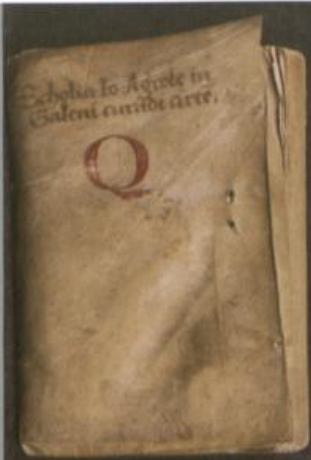 Scholia Io Agrote in
Galeni curãdi arte.
Q